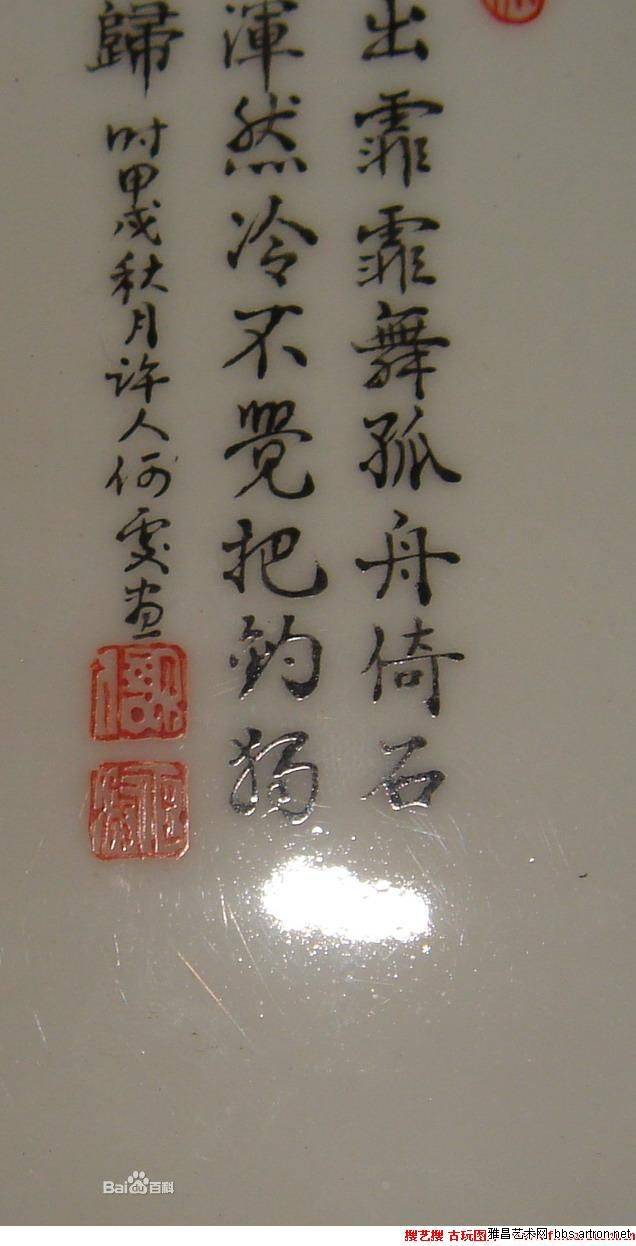 出霏霏舞孤舟倚石
渾然冷不覺把釣獨
歸
时甲戌秋月許人何雯畫
Bai百科
搜艺搜 古玩图
雅昌艺术网-bbs.artron.net